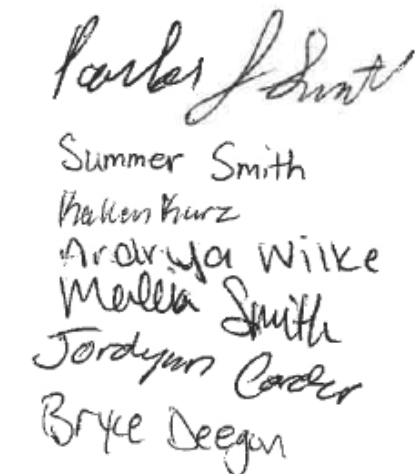 Summer Smith
Kallen Kurz
Ardriya Wilke
Mallia Smith
Jordynn Carder
Bryce Deegan